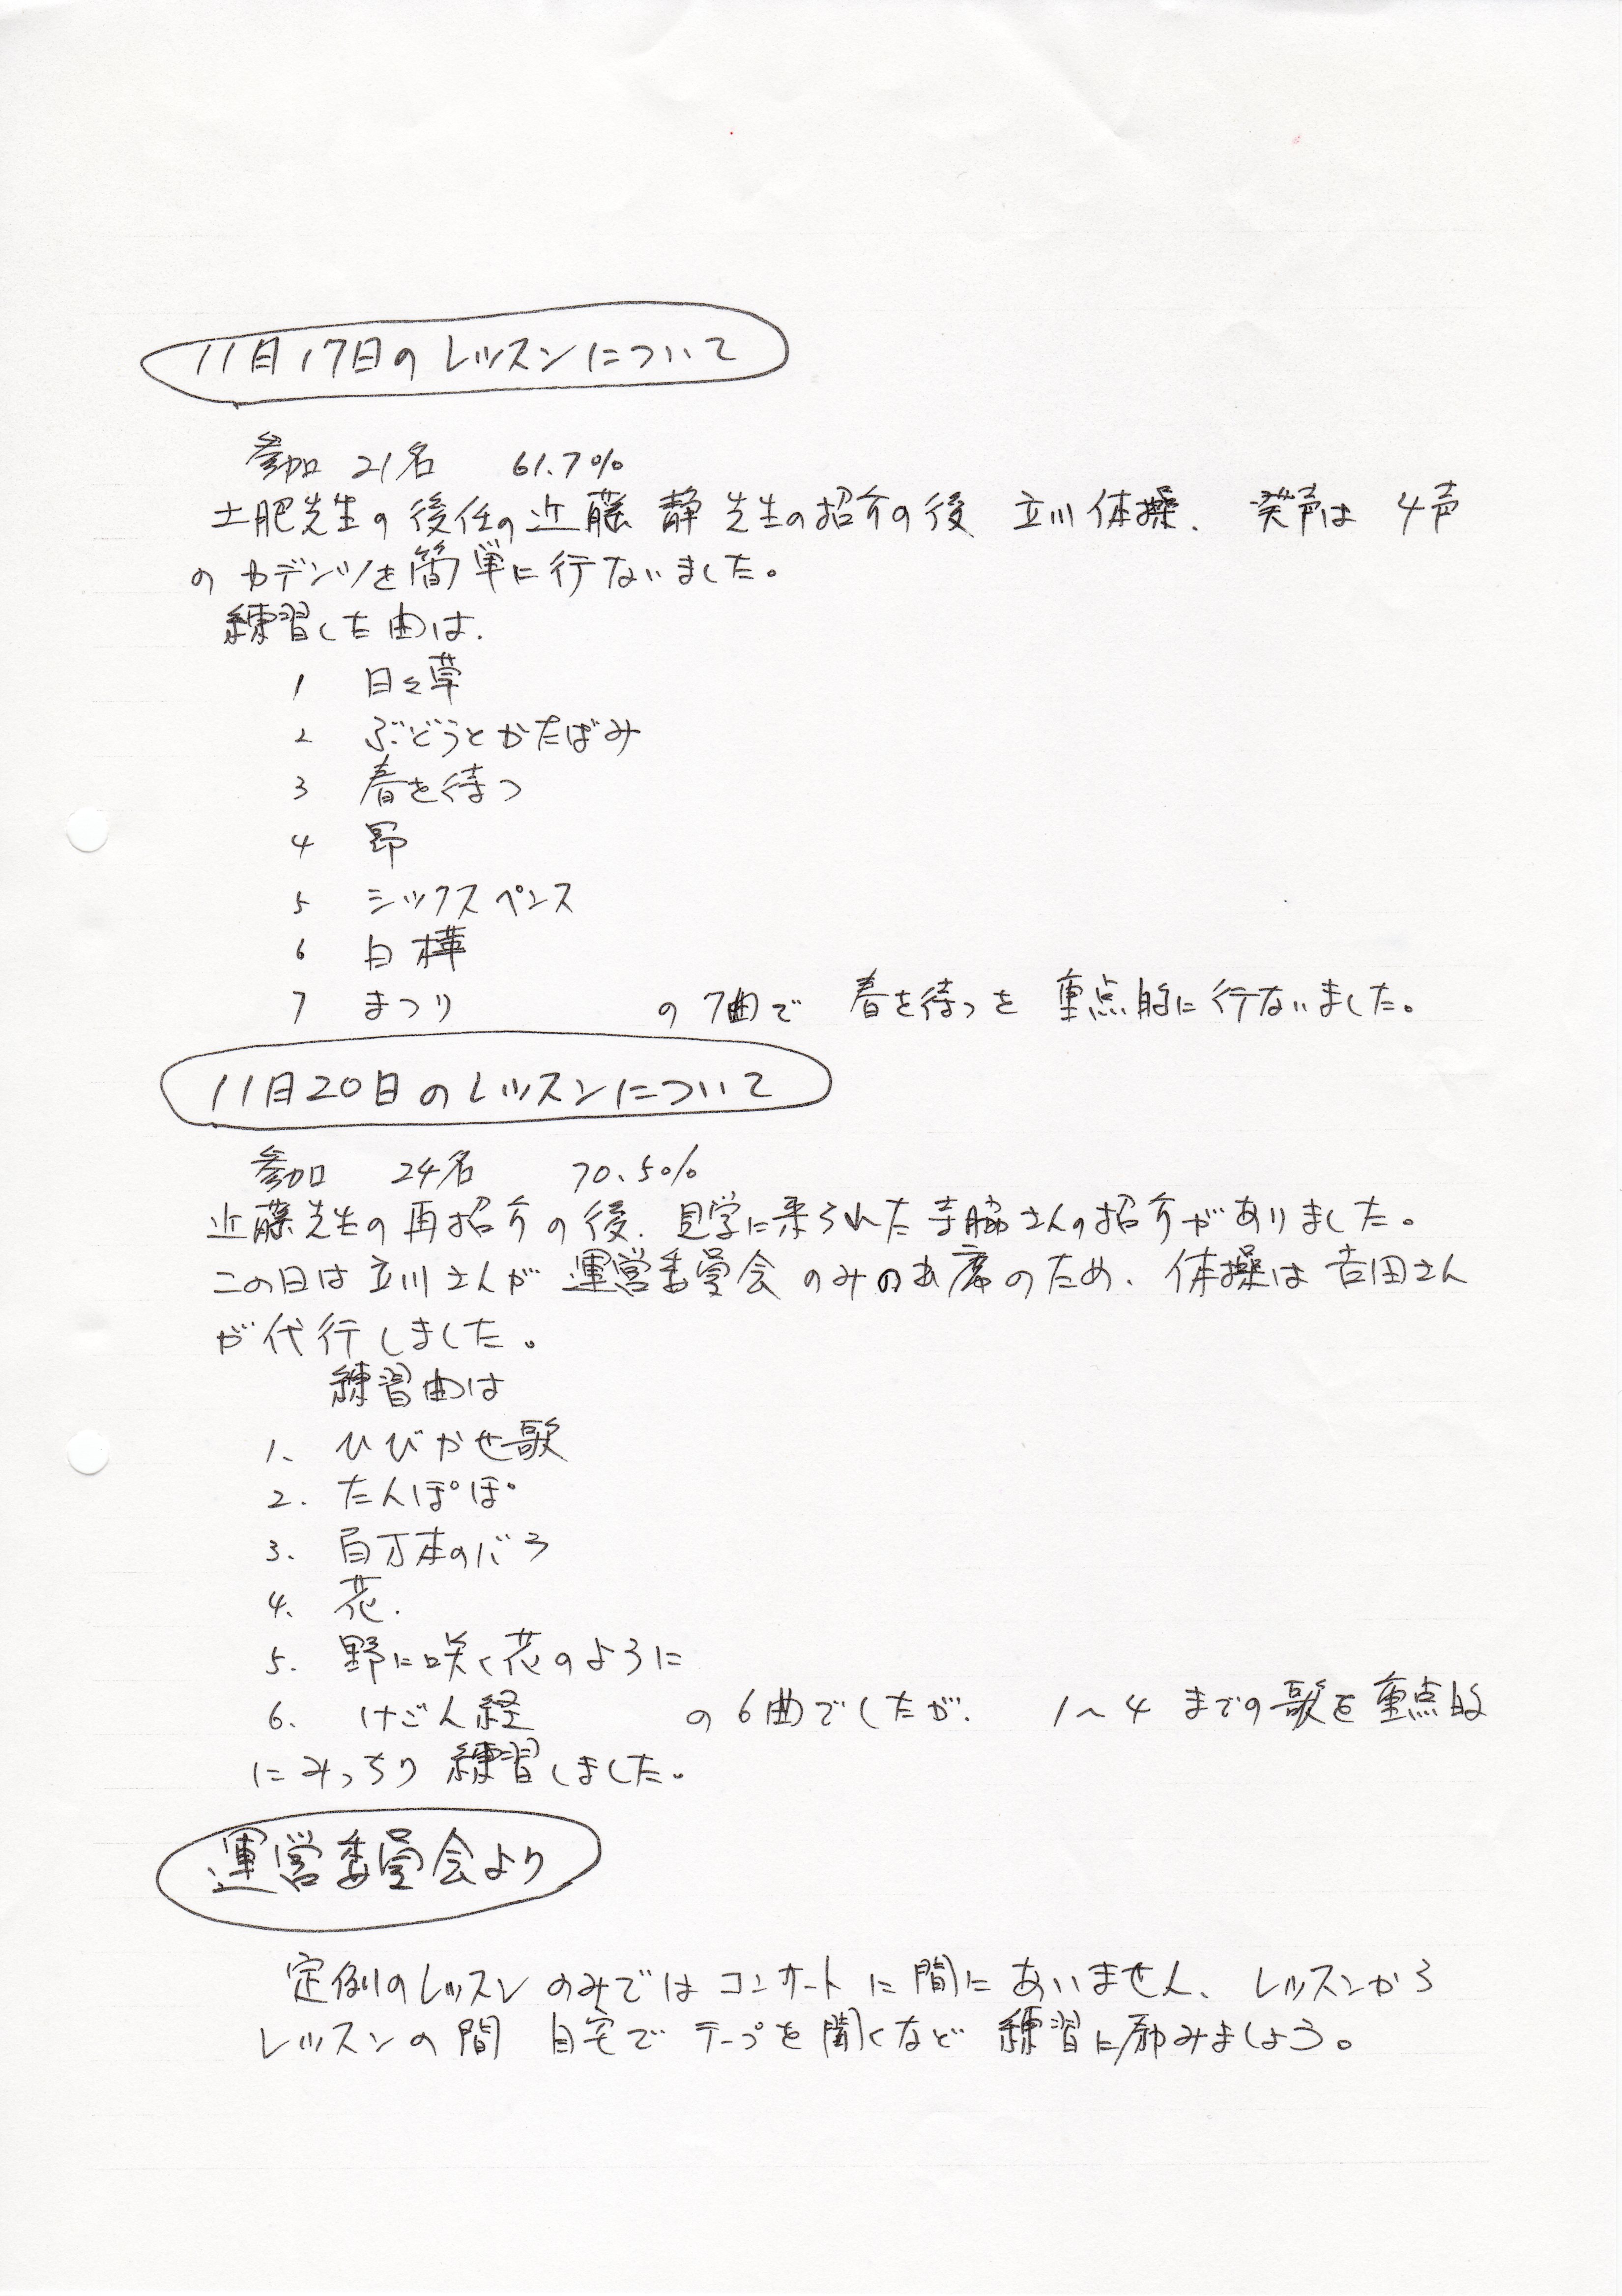 11月17日のレッスンについて
参加 21名 61.7%
土肥先生の後任の近藤 静先生の招介の後 立川体操、発声は 4声
のカデンツを簡単に行ないました。
練習した曲は、
1 日々草
2 ぶどうとかたばみ
3 春を待つ
4 野
5 シックスペンス
6 白樺
7 まつり の7曲で 春を待つを 重点的に行ないました。
11月20日のレッスンについて
参加 24名 70.5%
近藤先生の再招介の後、見学に来られた寺脇さんの招介がありました。
この日は立川さんが 運営委員会 のみの出席のため、体操は 吉田さん
が代行しました。
練習曲は
1、ひびかせ歌
2. たんぽぽ
3. 百万本のバラ
4. 花.
5. 野に咲く花のように
6. けごん経 の6曲でしたが、 1〜4 までの歌を重点的
にみっちり 練習しました。
運営委員会より
定例のレッスン のみでは コンサートに間にあいません、レッスンから
レッスンの間 自宅で テープを聞くなど 練習に励みましょう。